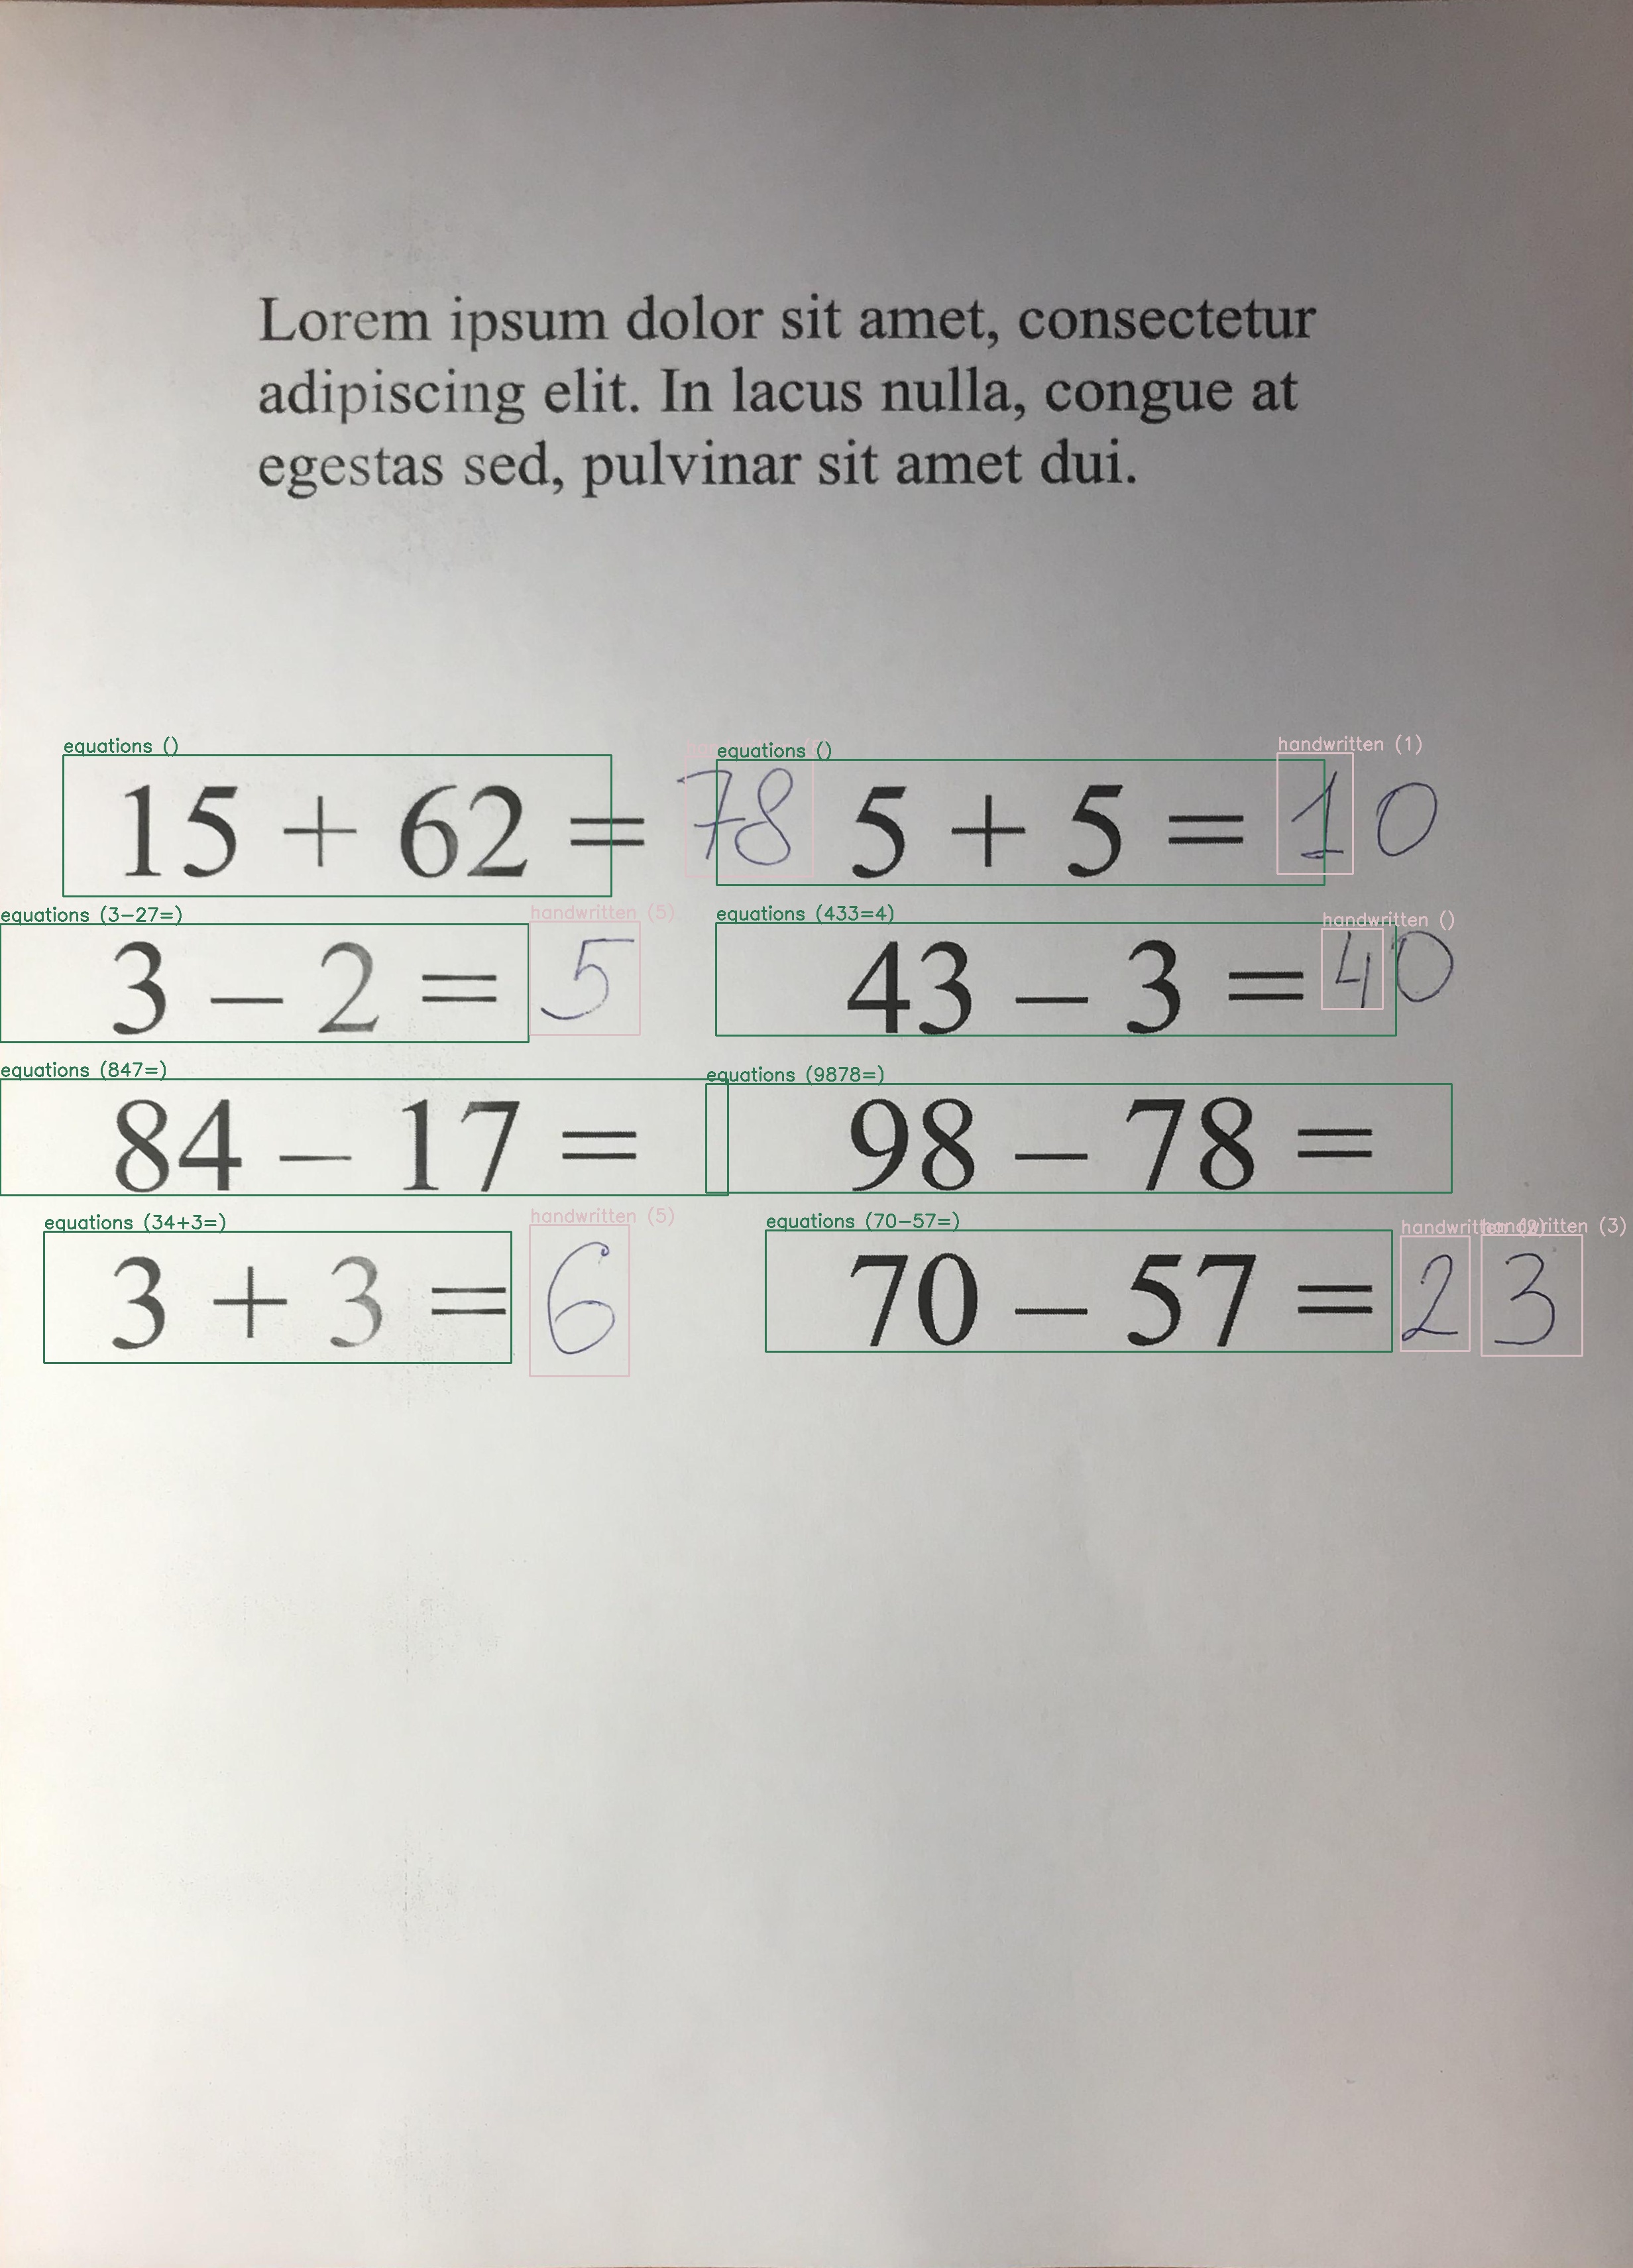 Lorem ipsum dolor sit amet, consectetur
adipiscing elit. In lacus nulla, congue at
egestas sed, pulvinar sit amet dui.
equations () equations () handwritten (1)
15 + 62 = 78 5 + 5 = 10
equations (3-27=) handwritten (5) equations (433=4) handwritten ()
3 – 2 = 5 43 – 3 = 40
equations (847=) equations (9878=)
84 – 17 = 98 – 78 =
equations (34+3=) handwritten (5) equations (70-57=) handwritten handwritten (3)
3 + 3 = 6 70 – 57 = 23